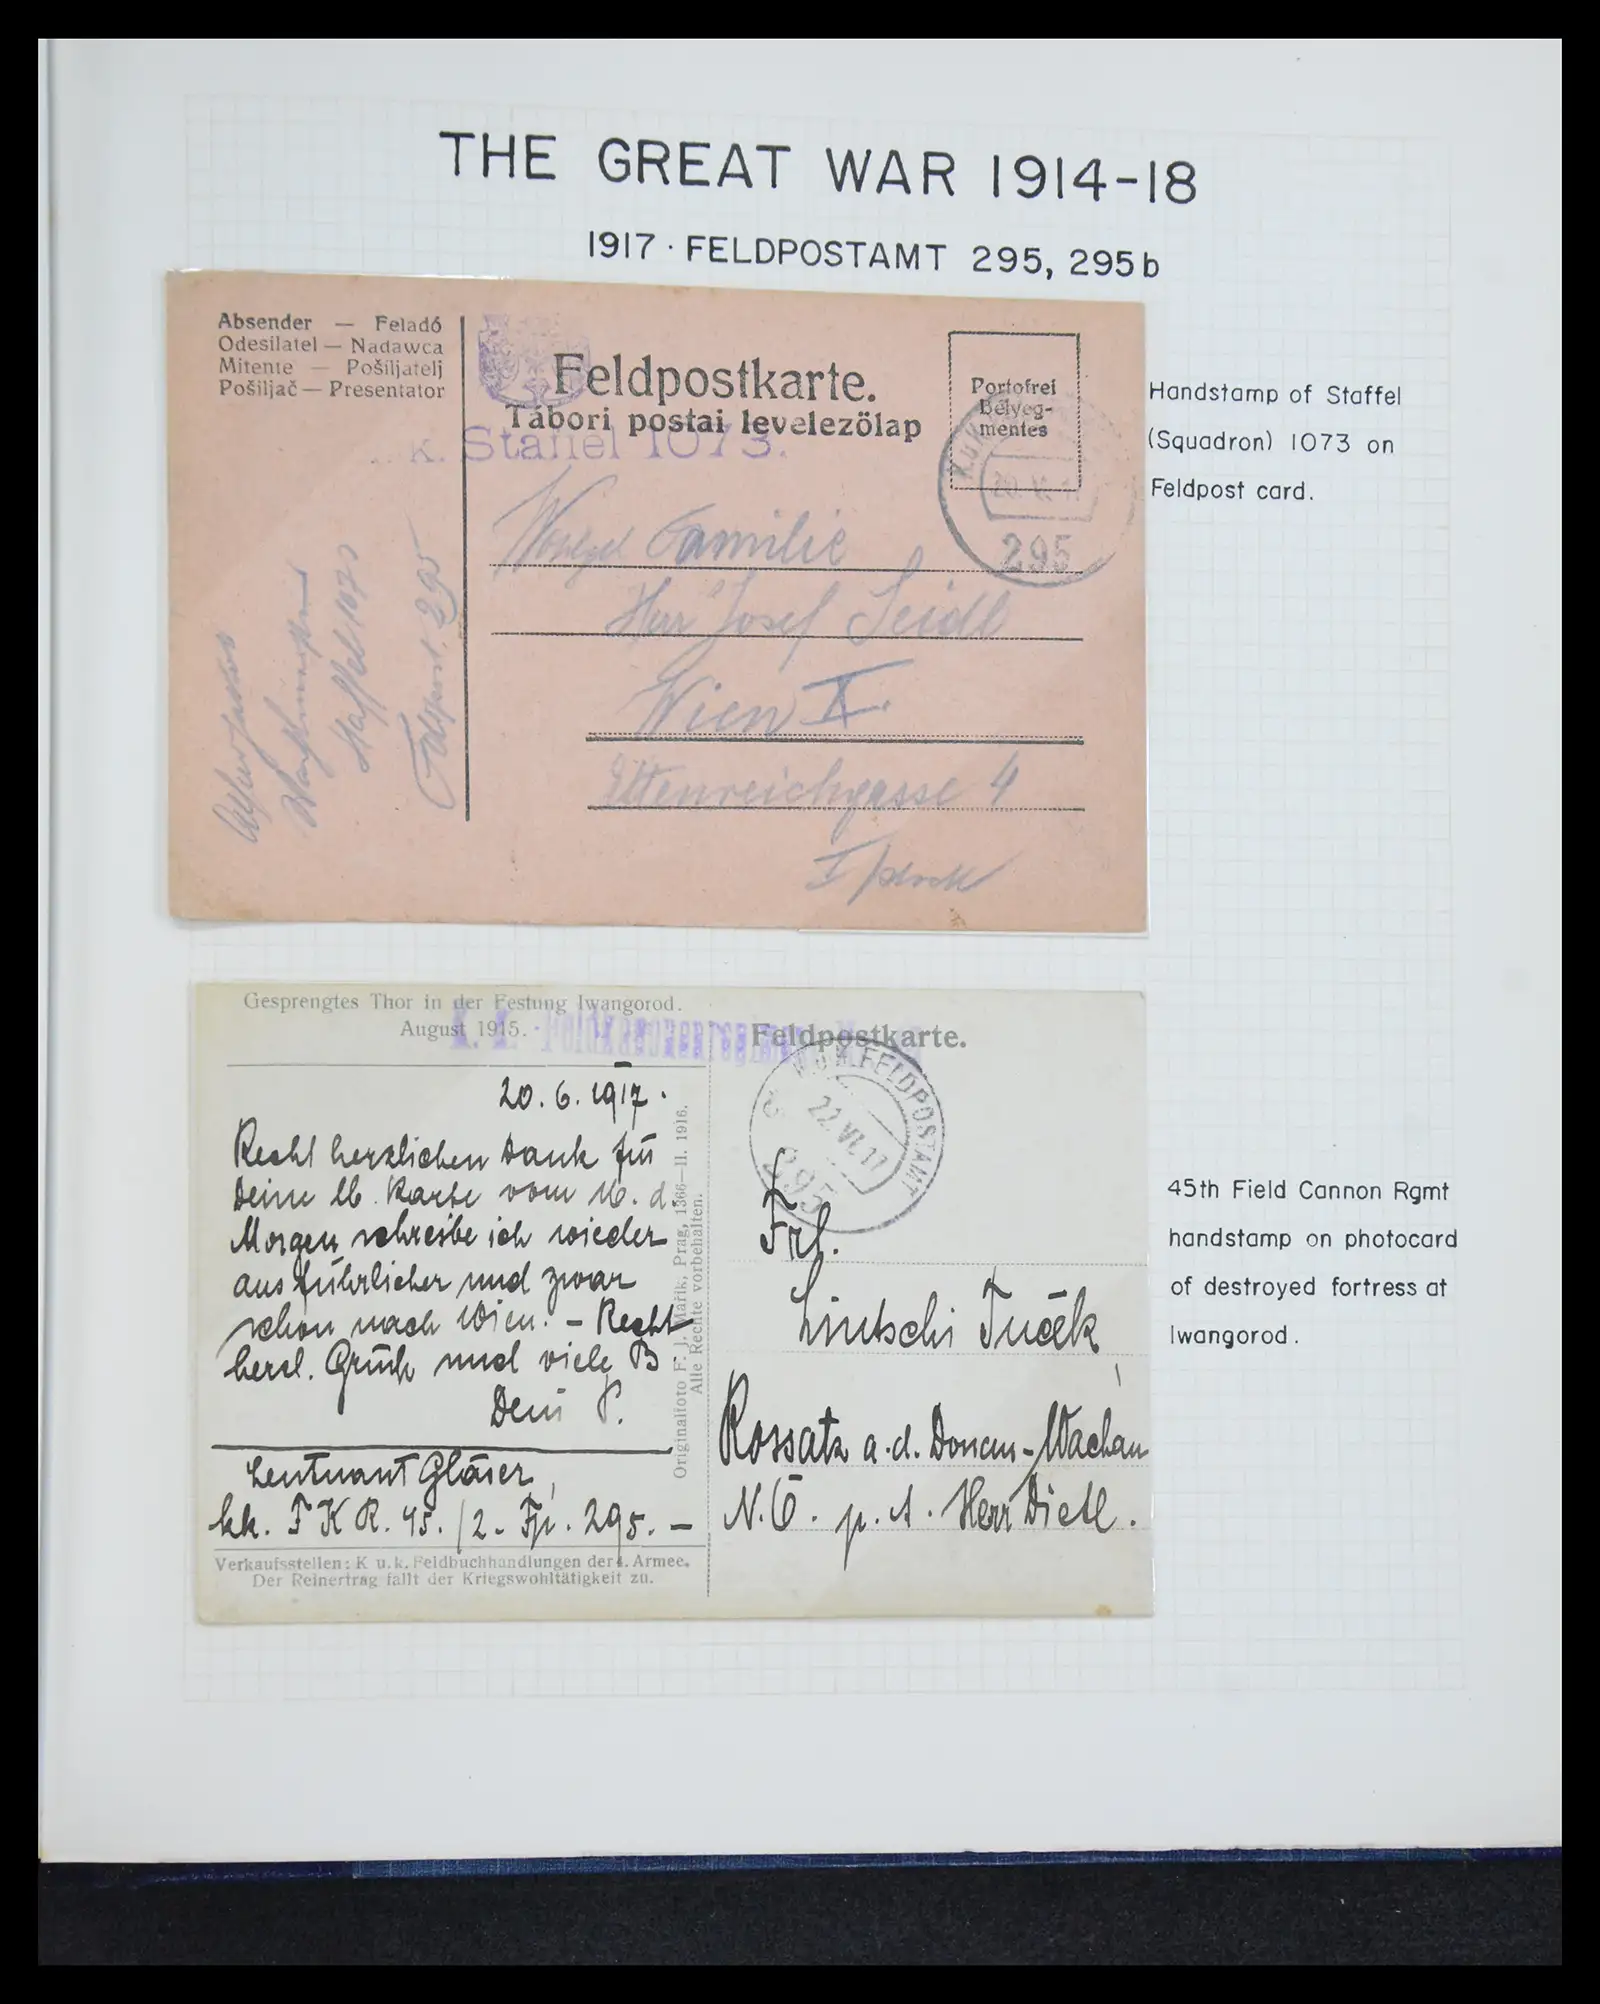 THE GREAT WAR 1914-18
1917 · FELDPOSTAMT 295, 295b
Absender — Feladó
Odesilatel — Nadawca
Mitente — Pošiljatelj
Pošiljač — Presentator
Feldpostkarte.
Tábori postai levelezölap
k. Staffel 1073.
Portofrei
Bélyeg-
mentes
295
Familie
Herr Josef Seidl
Wien X.
Ettenreichgasse 4
Staffel 1073
Feldpost. 295
Handstamp of Staffel
(Squadron) 1073 on
Feldpost card.
Gesprengtes Thor in der Festung Iwangorod.
August 1915.
Feldpostkarte.
K.U.K. FELDPOSTAMT
22.VI.17
295
20. 6. 1917.
Recht herzlichen Dank für
Deine lb. Karte vom 16. d.
Morgen schreibe ich wieder
ausführlicher und zwar
schon nach Wien. – Recht
herzl. Grüße und viele B.
Dein P.
Leutnant Gläser,
kk. F K R. 45. / 2. Fp. 295. –
Verkaufsstellen: K. u. k. Feldbuchhandlungen der 4. Armee.
Der Reinertrag fällt der Kriegswohltätigkeit zu.
Originalfoto F. J. Mařik, Prag, 1366—II. 1916.
Alle Rechte vorbehalten.
Frl.
Lintschi Tuček,
Rossatz a.d. Donau-Wachau
N.Ö. p. A. Herr Dietl.
45th Field Cannon Rgmt
handstamp on photocard
of destroyed fortress at
Iwangorod.